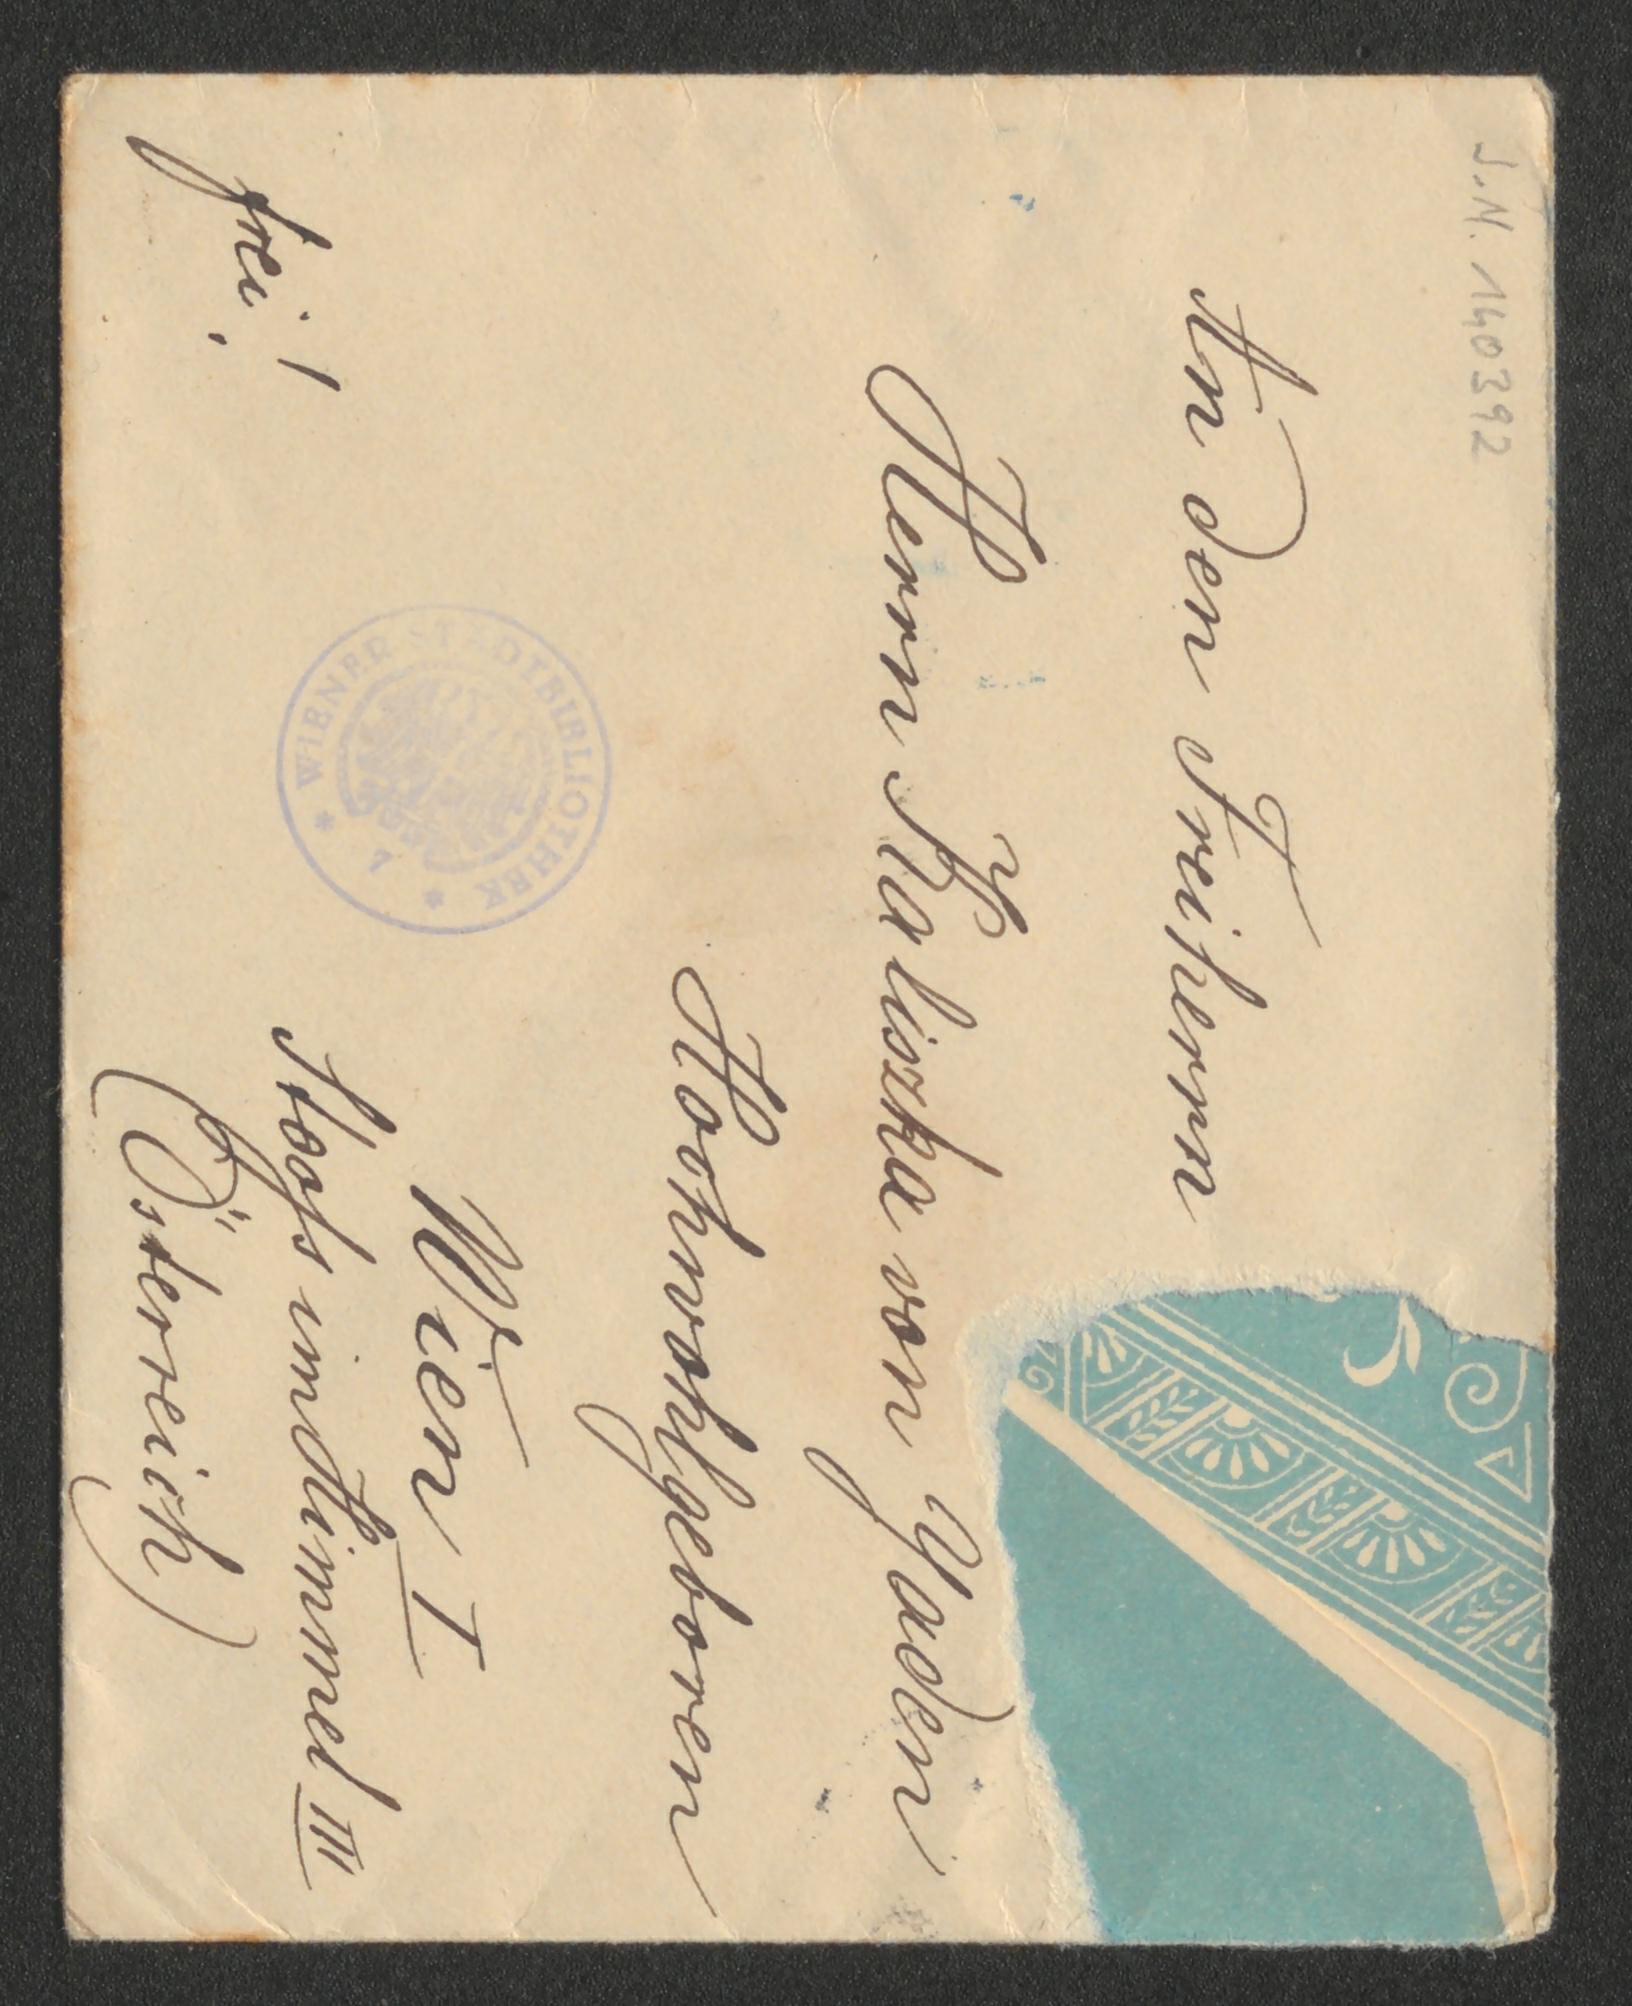 J.N. 140392
An den Freiherrn
Herrn Kaliszka von Yaden
Hochwohlgeboren
Wien I
Stoß im Himmel III
frei!
(Österreich)
WIENER STADTBIBLIOTHEK
7